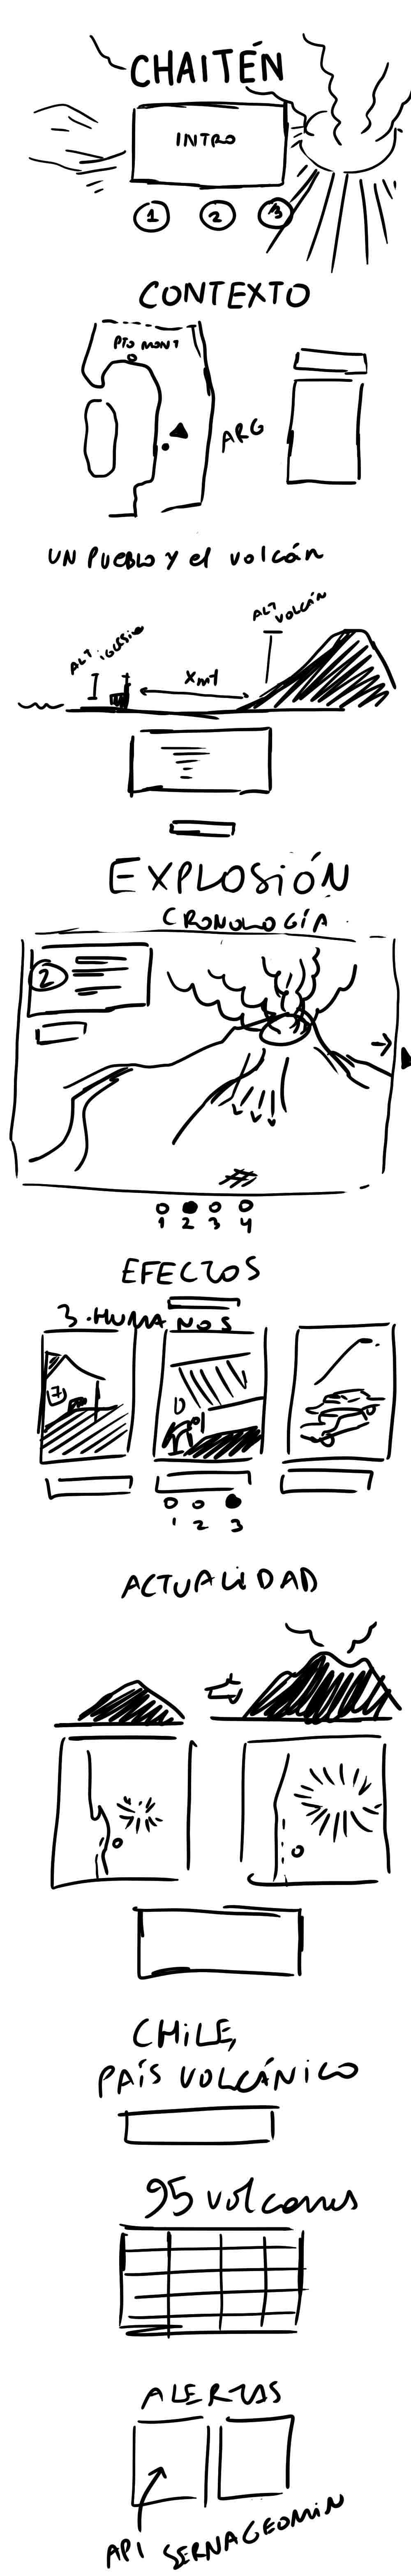 CHAITÉN
INTRO
1 2 3
CONTEXTO
PTO MONT
ARG
UN PUEBLO Y el volcán
ALT iglesia
X mt
ALT volcán
EXPLOSIÓN
CRONOLOGÍA
2
1 2 3 4
EFECTOS
3. HUMANOS
1 2 3
ACTUALIDAD
CHILE,
PAÍS VOLCÁNICO
95 volcanes
ALERTAS
API SERNAGEOMIN